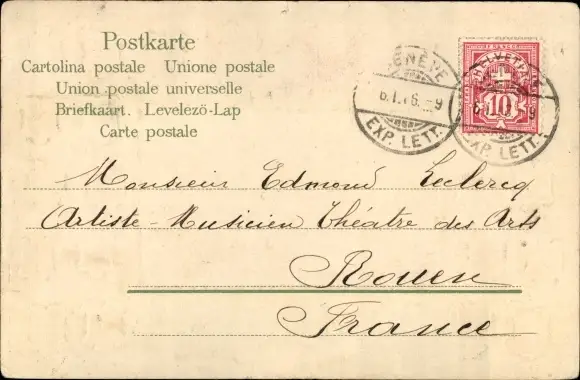 Postkarte
Cartolina postale Unione postale
Union postale universelle
Briefkaart. Levelező-Lap
Carte postale
GENÈVE
EXP. LETT.
HELVETIA
10
EXP. LETT.
Monsieur Edmond Leclercq
Artiste-Musicien Théatre des Arts
Rouen
France